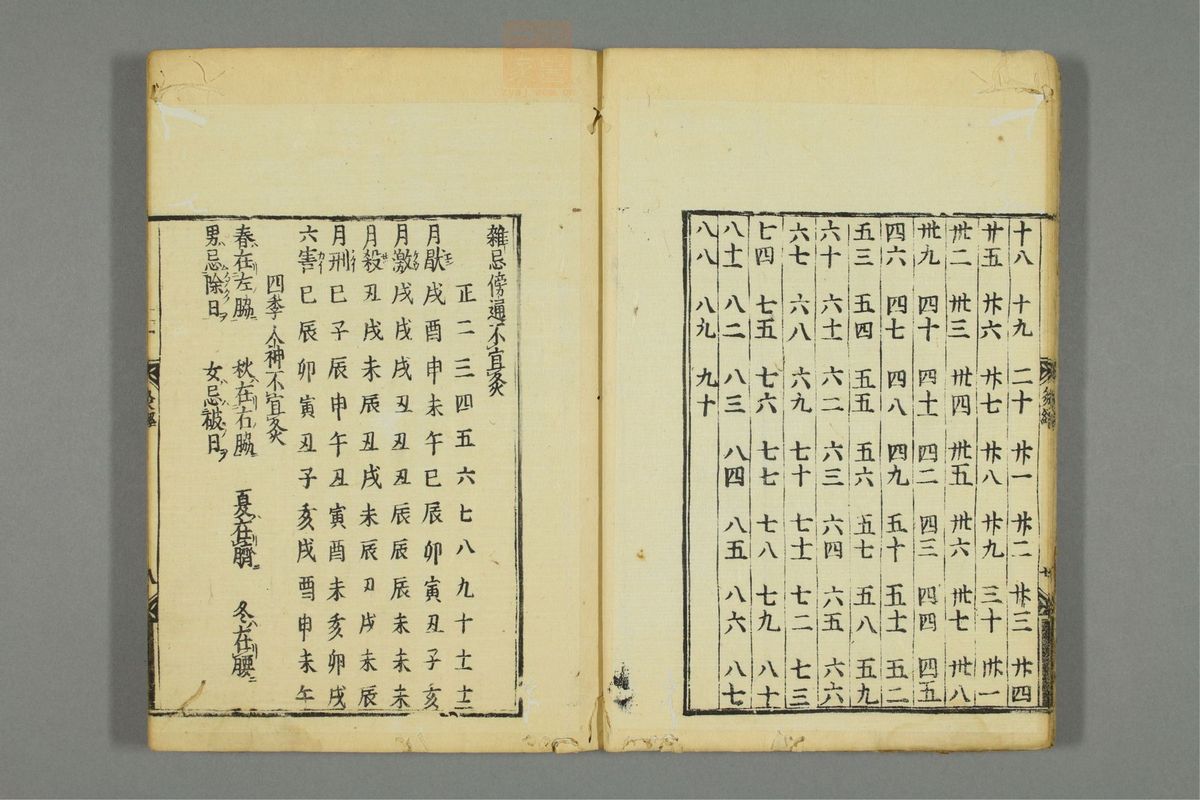 十八 十九 二十 廿一 廿二 廿三 廿四
廿五 廿六 廿七 廿八 廿九 三十 卅一
卅二 卅三 卅四 卅五 卅六 卅七 卅八
卅九 四十 四十一 四二 四三 四四 四五
四六 四七 四八 四九 五十 五十一 五二
五三 五四 五五 五六 五七 五八 五九
六十 六十一 六二 六三 六四 六五 六六
六七 六八 六九 七十 七十一 七二 七三
七四 七五 七六 七七 七八 七九 八十
八十一 八二 八三 八四 八五 八六 八七
八八 八九 九十
雜忌傍通不宜灸
正 二 三 四 五 六 七 八 九 十 十一 十二
月厭 戌 酉 申 未 午 巳 辰 卯 寅 丑 子 亥
月激 戌 戌 戌 丑 丑 丑 辰 辰 辰 未 未 未
月殺 丑 戌 未 辰 丑 戌 未 辰 丑 戌 未 辰
月刑 巳 子 辰 申 午 丑 寅 酉 未 亥 卯 戌
六害 巳 辰 卯 寅 丑 子 亥 戌 酉 申 未 午
四季人神不宜灸
春在左脇 秋在右脇 夏在臍 冬在腰
男忌除日 女忌破日